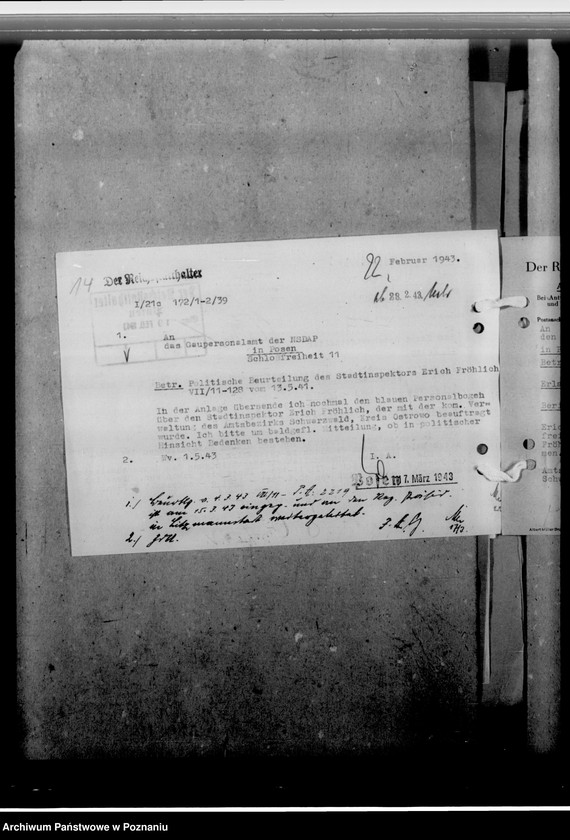 14
Der Reichsstatthalter
22. Februar 1943.
I/21a 172/1-2/39
ab 23.2.43
1. An
das Gaupersonalamt der NSDAP
in Posen
Schlossfreiheit 11
Betr. Politische Beurteilung des Stadtinspektors Erich Fröhlich
VII/11-128 vom 13.5.41.
In der Anlage übersende ich nochmal den blauen Personalbogen
über den Stadtinspektor Erich Fröhlich, der mit der kom. Ver-
waltung des Amtsbezirks Schwarzwald, Kreis Ostrowo beauftragt
wurde. Ich bitte um baldgefl. Mitteilung, ob in politischer
Hinsicht Bedenken bestehen.
2. Wv. 1.5.43
I. A.
17. März 1943
1.) v. 4.3.43 VII/11 - P.A. 2219
ist am 15.3.43 eingeg. und an den Reg. Präsid.
in Litzmannstadt weitergeleitet.
2.)
Der R
Bei
und
An
den
in P
Betr
Erl
Eri
frei
Frö
men
Amt
Sch
Archiwum Państwowe w Poznaniu